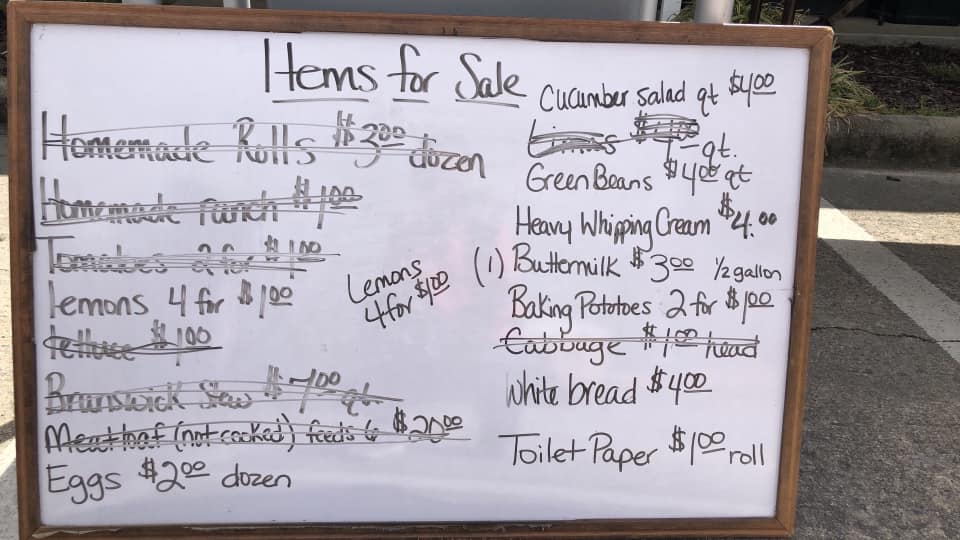 Items for Sale
Homemade Rolls $3.00 dozen
Homemade ranch $1.00
Tomatoes 2 for $1.00
lemons 4 for $1.00
lettuce $1.00
Brunswick Stew $7.00 qt.
Meatloaf (not cooked) feeds 6 $20.00
Eggs $2.00 dozen
Lemons
4 for $1.00
Cucumber salad qt $4.00
qt.
Green Beans $4.00 qt
Heavy Whipping Cream $4.00
(1) Buttermilk $3.00 1/2 gallon
Baking Pototoes 2 for $1.00
Cabbage $1.00 head
White bread $4.00
Toilet Paper $1.00 roll